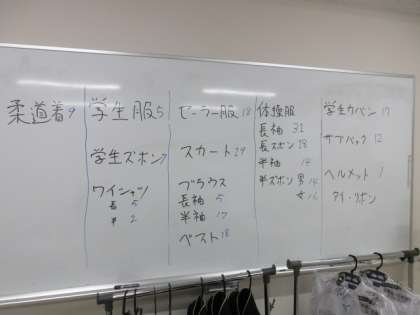 柔道着9
学生服5
学生ズボン7
ワイシャツ
長 5
半 2
セーラー服18
スカート29
ブラウス
長袖 5
半袖 17
ベスト18
体操服
長袖 31
長ズボン 18
半袖 14
半ズボン 男 14
女 16
学生カバン 17
サブバック 12
ヘルメット 7
タイ・リボン